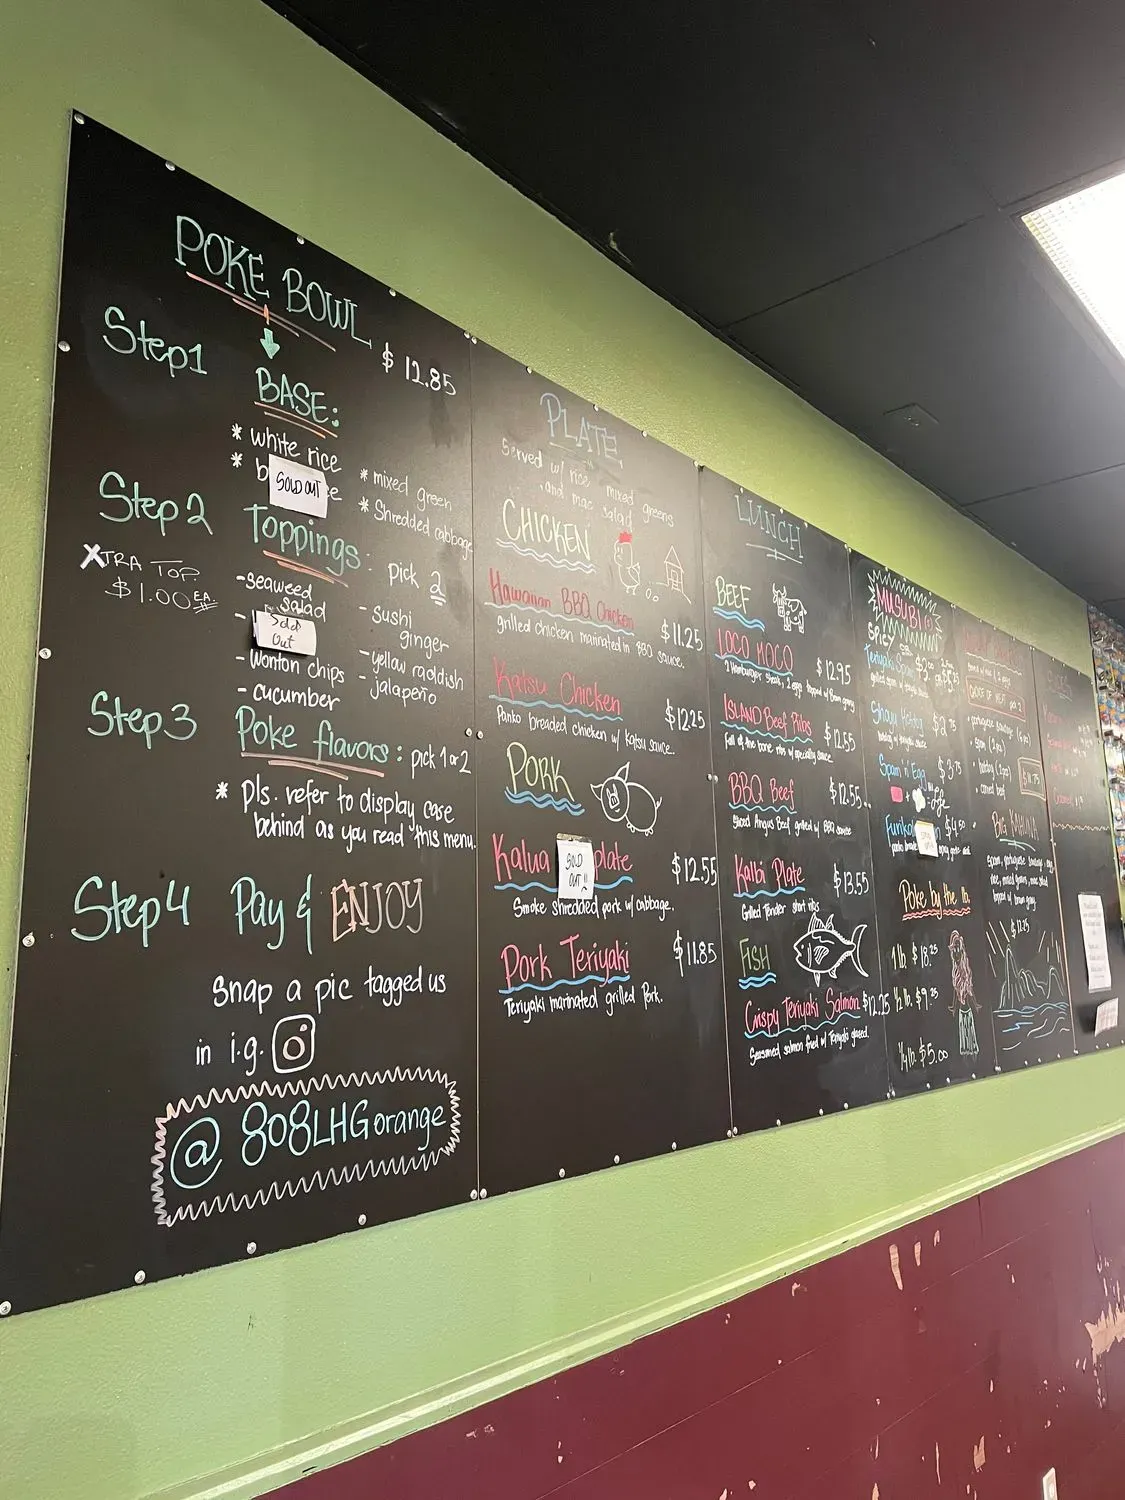 POKE BOWL
$ 12.85
Step1
BASE:
* white rice
* b
SOLD OUT
e
* mixed green
* Shredded cabbage
Step2
Toppings: pick 2
XTRA TOP.
$1.00 EA.
-seaweed
salad
Sold
Out
- Wonton chips
- cucumber
- sushi
ginger
-yellow raddish
- jalapeño
Step3
Poke flavors: pick 1 or 2
* pls. refer to display case
behind as you read this menu.
Step4 Pay & ENJOY
Snap a pic tagged us
in i.g.
@ 808LHGorange
PLATE
Served w/ rice mixed greens
and mac salad
CHICKEN
Hawaiian BBQ Chicken $11.25
grilled chicken marinated in BBQ sauce.
Katsu Chicken $12.25
Panko breaded chicken w/ Katsu sauce.
PORK
Kalua plate $12.55
SOLD
OUT!!
Smoke shredded pork w/ cabbage.
Pork Teriyaki $11.85
Teriyaki marinated grilled Pork.
LUNCH
BEEF
LOCO MOCO $12.95
2 Hamburger steak, 2 eggs topped w/ Brown gravy
ISLAND Beef Ribs $12.55
Fall of the bone ribs w/ specialty sauce
BBQ Beef $12.55
Sliced Angus Beef grilled w/ BBQ sauce
Kalbi Plate $13.55
Grilled Tender short ribs
FISH
Crispy Teriyaki Salmon $12.25
Seasoned salmon fried w/ Teriyaki glazed.
MUSUBI
SPICY
Teriyaki Spam
$2.75
Spam 'n' Egg $3.75
Life
$4.50
Poke by the lb.
1 lb. $18.25
½ lb. $9.25
¼ lb. $5.00
portuguese sausage
spam (2 pcs)
hotdog (2 pcs)
corned beef
$11.75
BIG KAHUNA
Spam, portuguese sausage, egg,
rice, mixed greens, mac salad
topped w/ brown gravy
$12.25